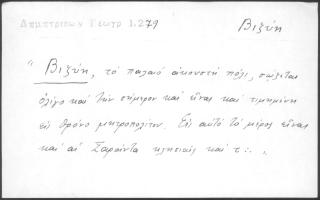 Δημητρίων Γεωγρ 1.279
Βιζύη
"Βιζύη, τό παλαιό ἀκουστή πόλι, σώζεται
ὀλίγο καί τήν σήμερον καί εἶναι καί τιμημένη
εἰς θρόνο μητροπολίτου. Εἰς αὐτό τό μέρος εἶναι
καί αἱ Σαράντα κλησιαίς καί τ...